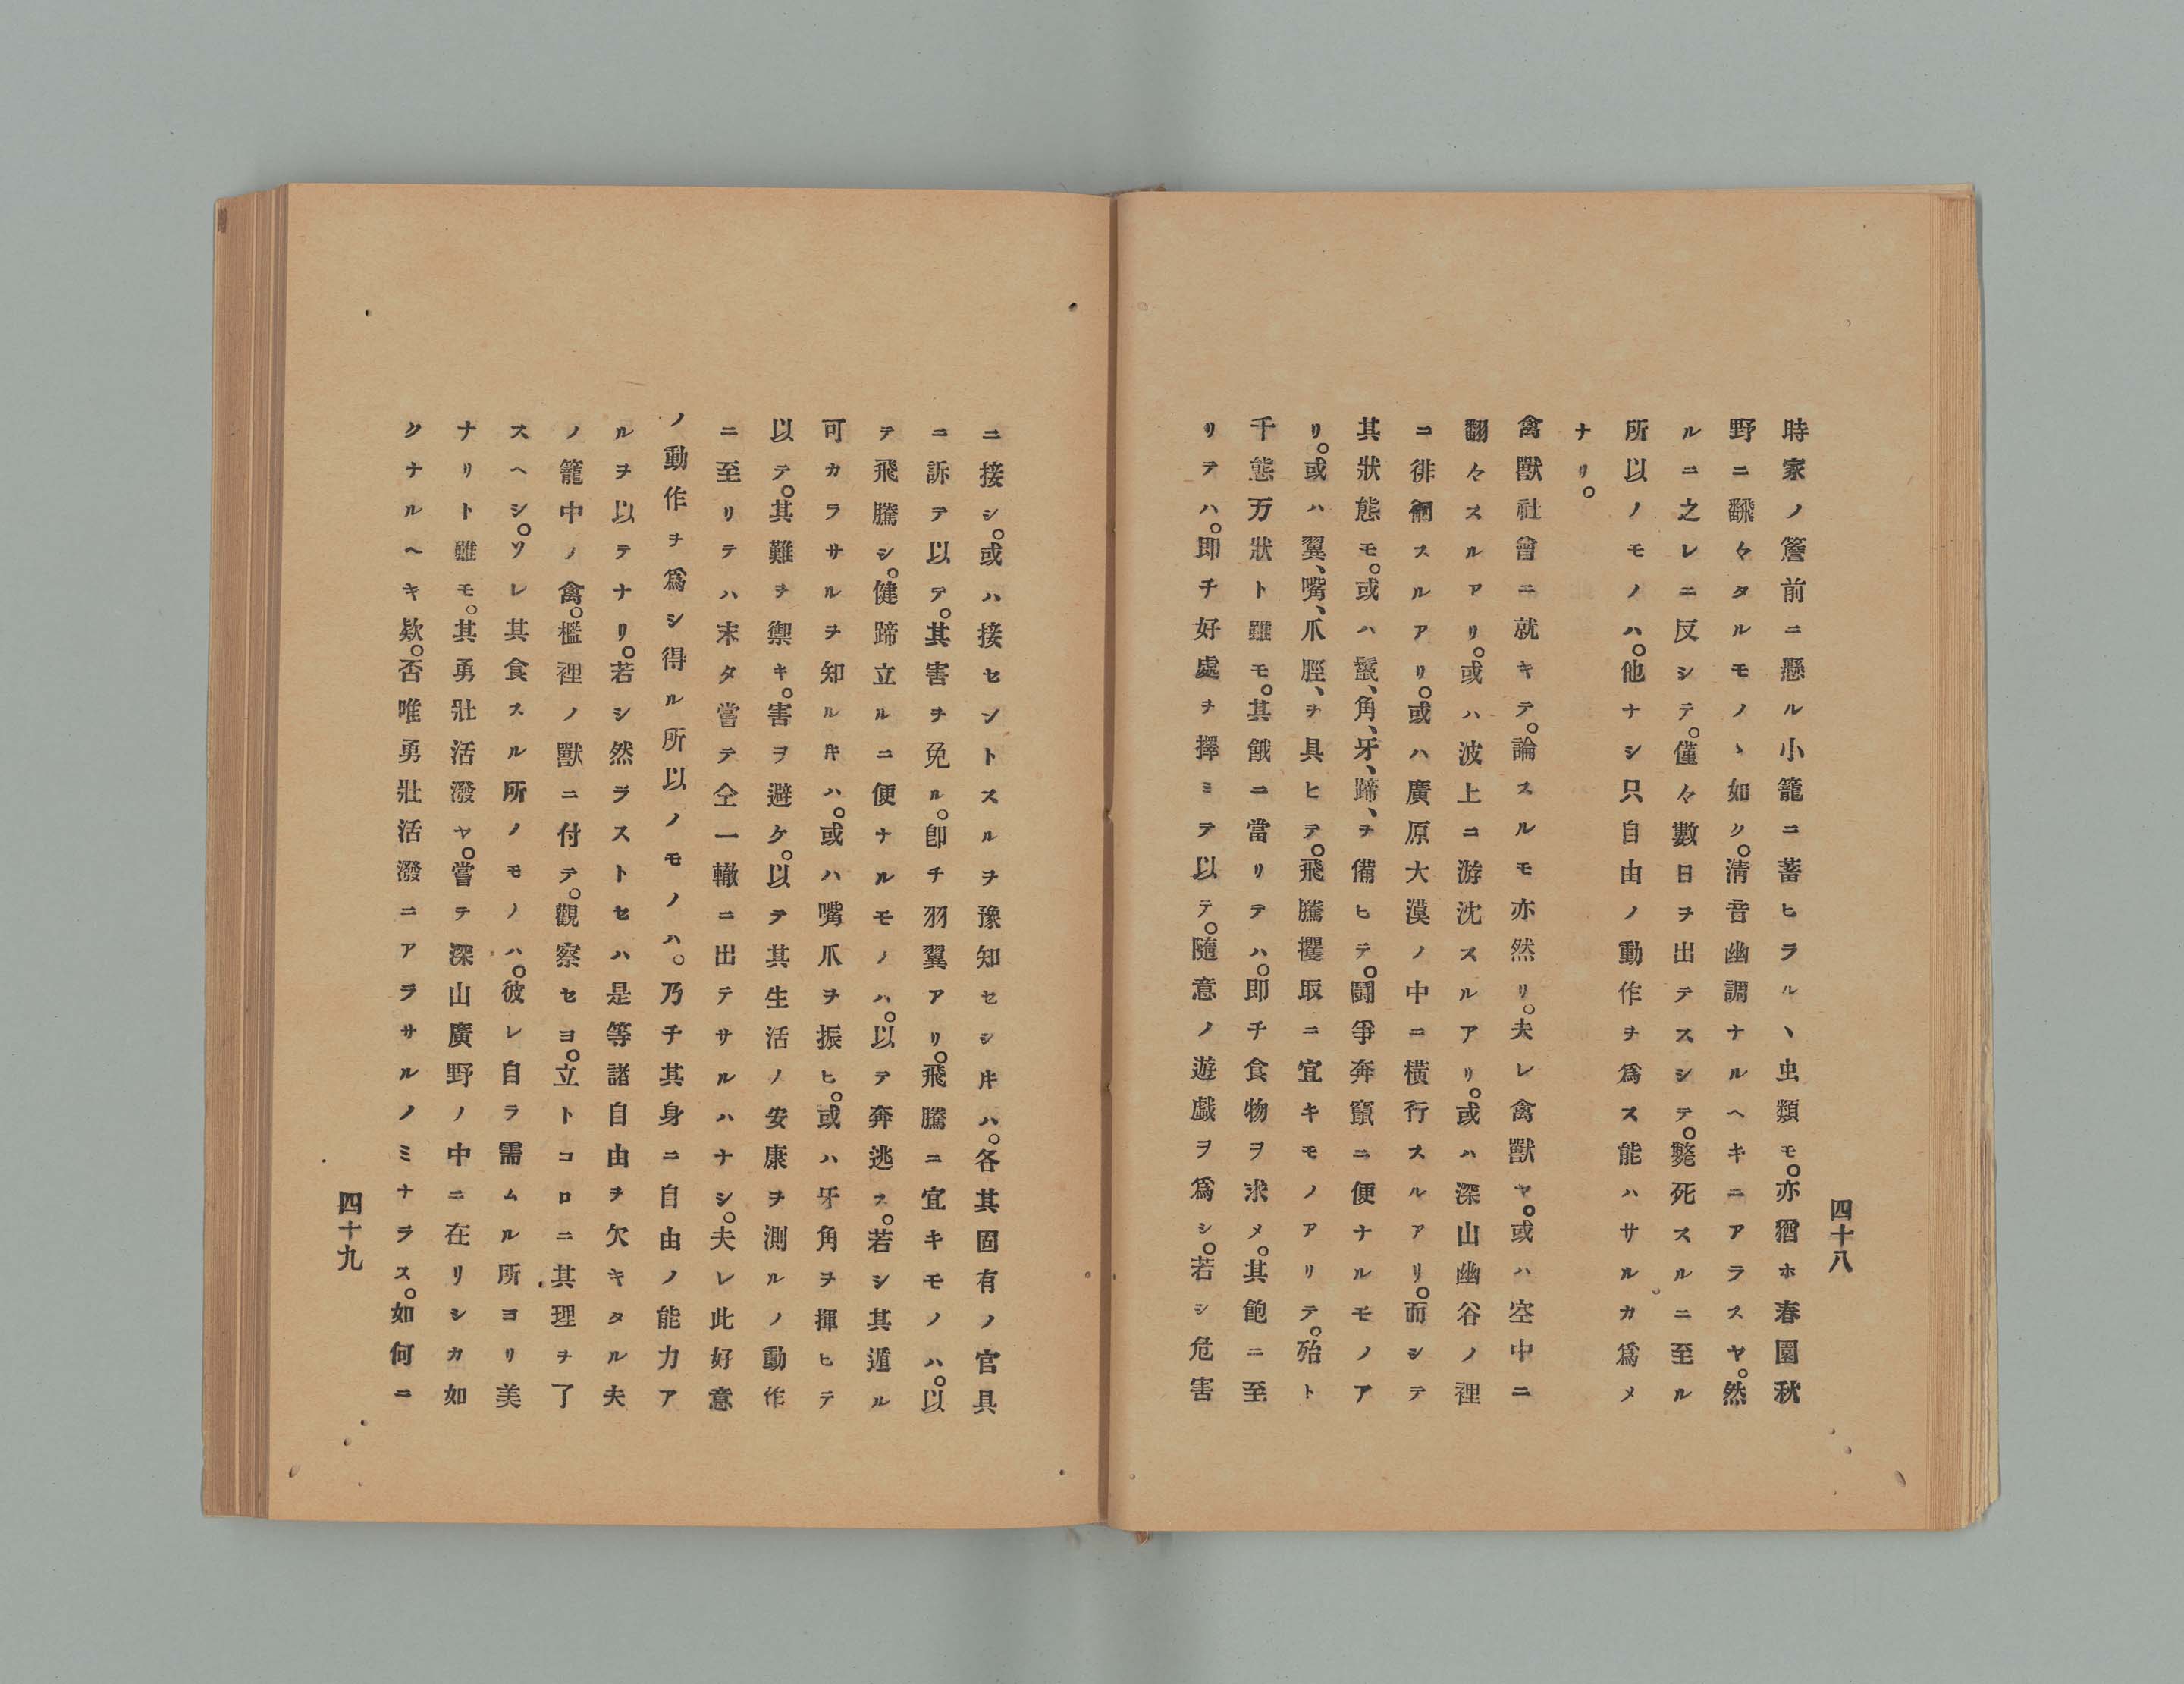 四十八
時家ノ簷前ニ懸ル小籠ニ蓄ヒラルヽ虫類モ。亦猶ホ春園秋
野ニ飜々タルモノヽ如ク。淸音幽調ナルヘキニアラスヤ。然
ルニ之レニ反シテ。僅々數日ヲ出テスシテ。斃死スルニ至ル
所以ノモノハ。他ナシ只自由ノ動作ヲ爲ス能ハサルカ爲メ
ナリ。
禽獸社曾ニ就キテ。論スルモ亦然リ。夫レ禽獸ヤ。或ハ空中ニ
翻々スルアリ。或ハ波上ニ游沈スルアリ。或ハ深山幽谷ノ裡
ニ徘徊スルアリ。或ハ廣原大漠ノ中ニ橫行スルアリ。而シテ
其狀態モ。或ハ鬣、角、牙、蹄、ヲ備ヒテ。鬪爭奔竄ニ便ナルモノア
リ。或ハ翼、嘴、爪脛、ヲ具ヒテ。飛騰攫取ニ宜キモノアリテ。殆ト
千態万狀ト雖モ。其餓ニ當リテハ。即チ食物ヲ求メ。其飽ニ至
リテハ。即チ好處ヲ擇ミテ以テ。隨意ノ遊戯ヲ爲シ。若シ危害
ニ接シ。或ハ接セントスルヲ豫知セシ𪜈ハ。各其固有ノ官具
ニ訴テ以テ。其害ヲ免ル。卽チ羽翼アリ。飛騰ニ宜キモノハ。以
テ飛騰シ。健蹄立ルニ便ナルモノハ。以テ奔逃ス。若シ其遁ル
可カラサルヲ知ル𪜈ハ。或ハ嘴爪ヲ振ヒ。或ハ牙角ヲ揮ヒテ
以テ。其難ヲ禦キ。害ヲ避ケ。以テ其生活ノ安康ヲ測ルノ動作
ニ至リテハ末タ嘗テ仝一轍ニ出テサルハナシ。夫レ此好意
ノ動作ヲ爲シ得ル所以ノモノハ。乃チ其身ニ自由ノ能力ア
ルヲ以テナリ。若シ然ラストセハ是等諸自由ヲ欠キタル夫
ノ籠中ノ禽。檻裡ノ獸ニ付テ。觀察セヨ。立トコロニ其理ヲ了
スヘシ。ソレ其食スル所ノモノハ。彼レ自ラ需ムル所ヨリ美
ナリト雖モ。其勇壯活潑ヤ。嘗テ深山廣野ノ中ニ在リシカ如
クナルヘキ歟。否唯勇壯活潑ニアラサルノミナラス。如何ニ
四十九